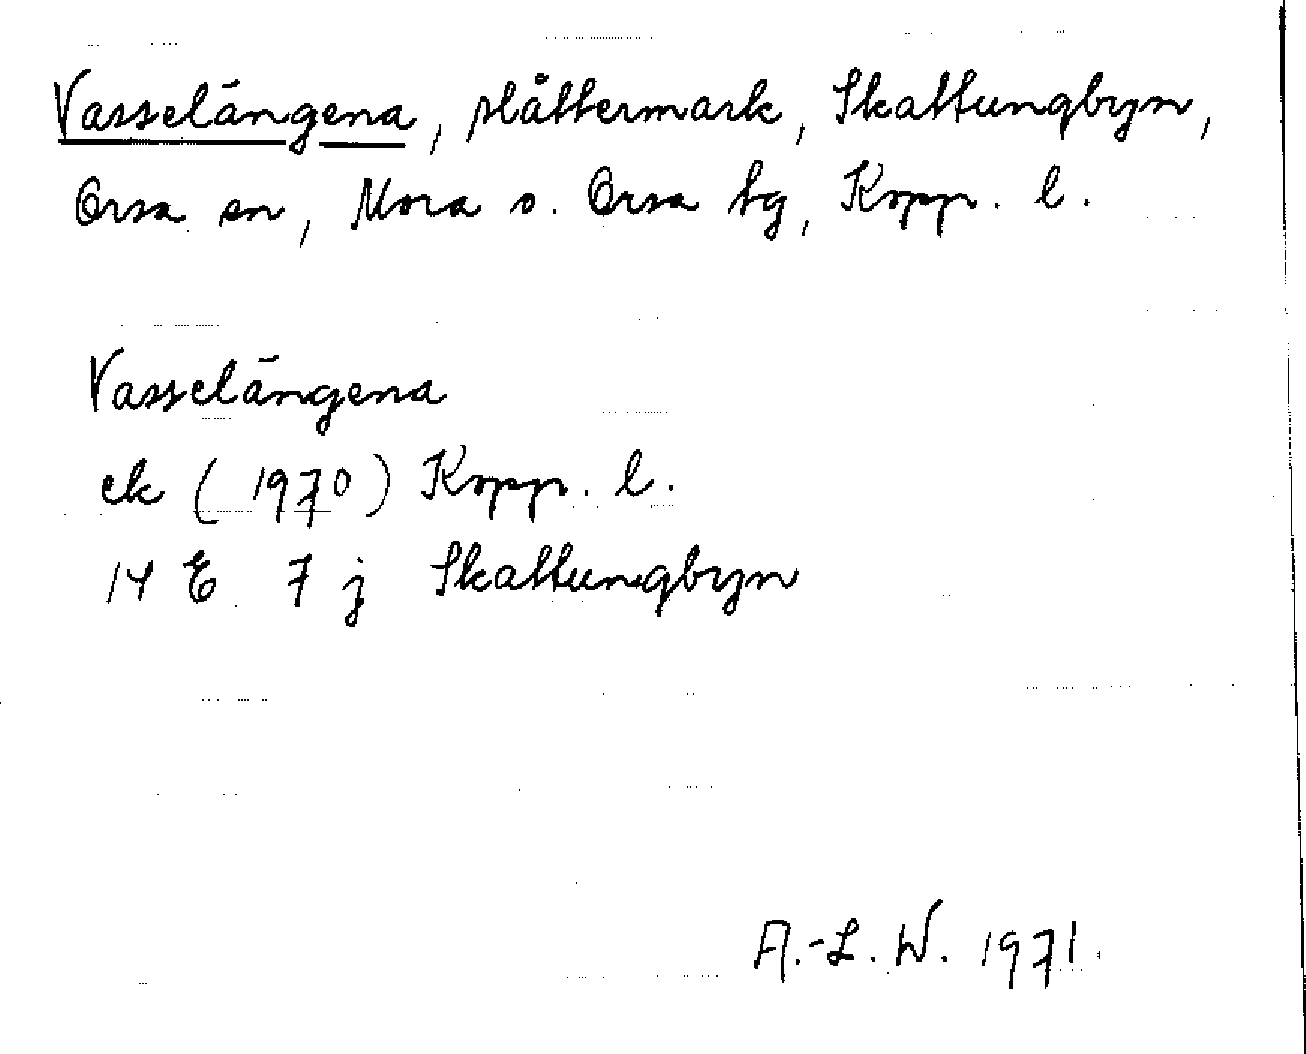 Vasselängena, slåttermark, Skattungbyn,
Orsa sn, Mora o. Orsa tg, Kopp. l.
Vasselängena
ek (1970) Kopp. l.
14 E 7 j Skattungbyn
A.-L. W. 1971.